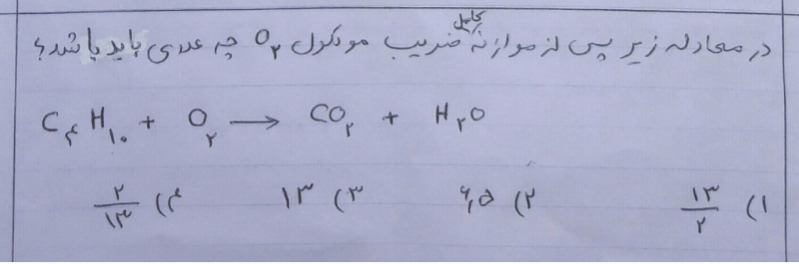 در معادله زیر پس از موازنه کامل ضریب مولکول O۲ چه عددی باید باشد؟
C۴H۱۰ + O۲ → CO۲ + H۲O
۱) ۱۳/۲ ۲) ۶,۵ ۳) ۱۳ ۴) ۲/۱۳